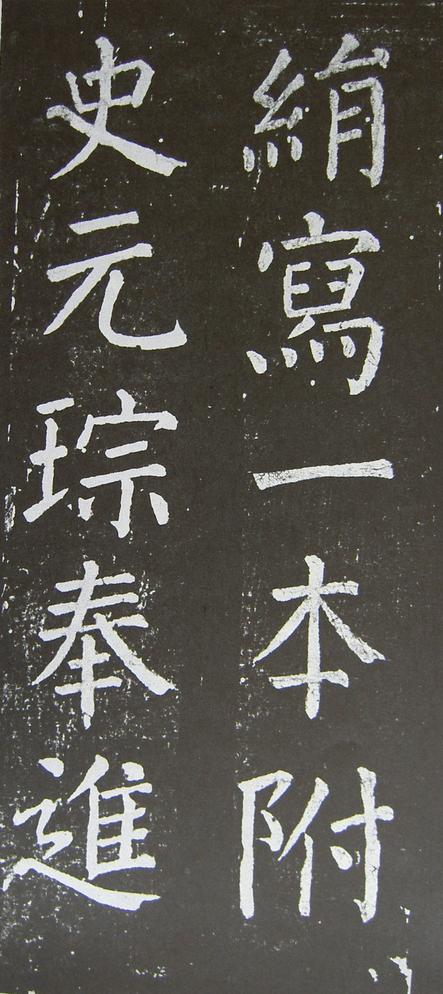 絹寫一本附
史元琮奉進